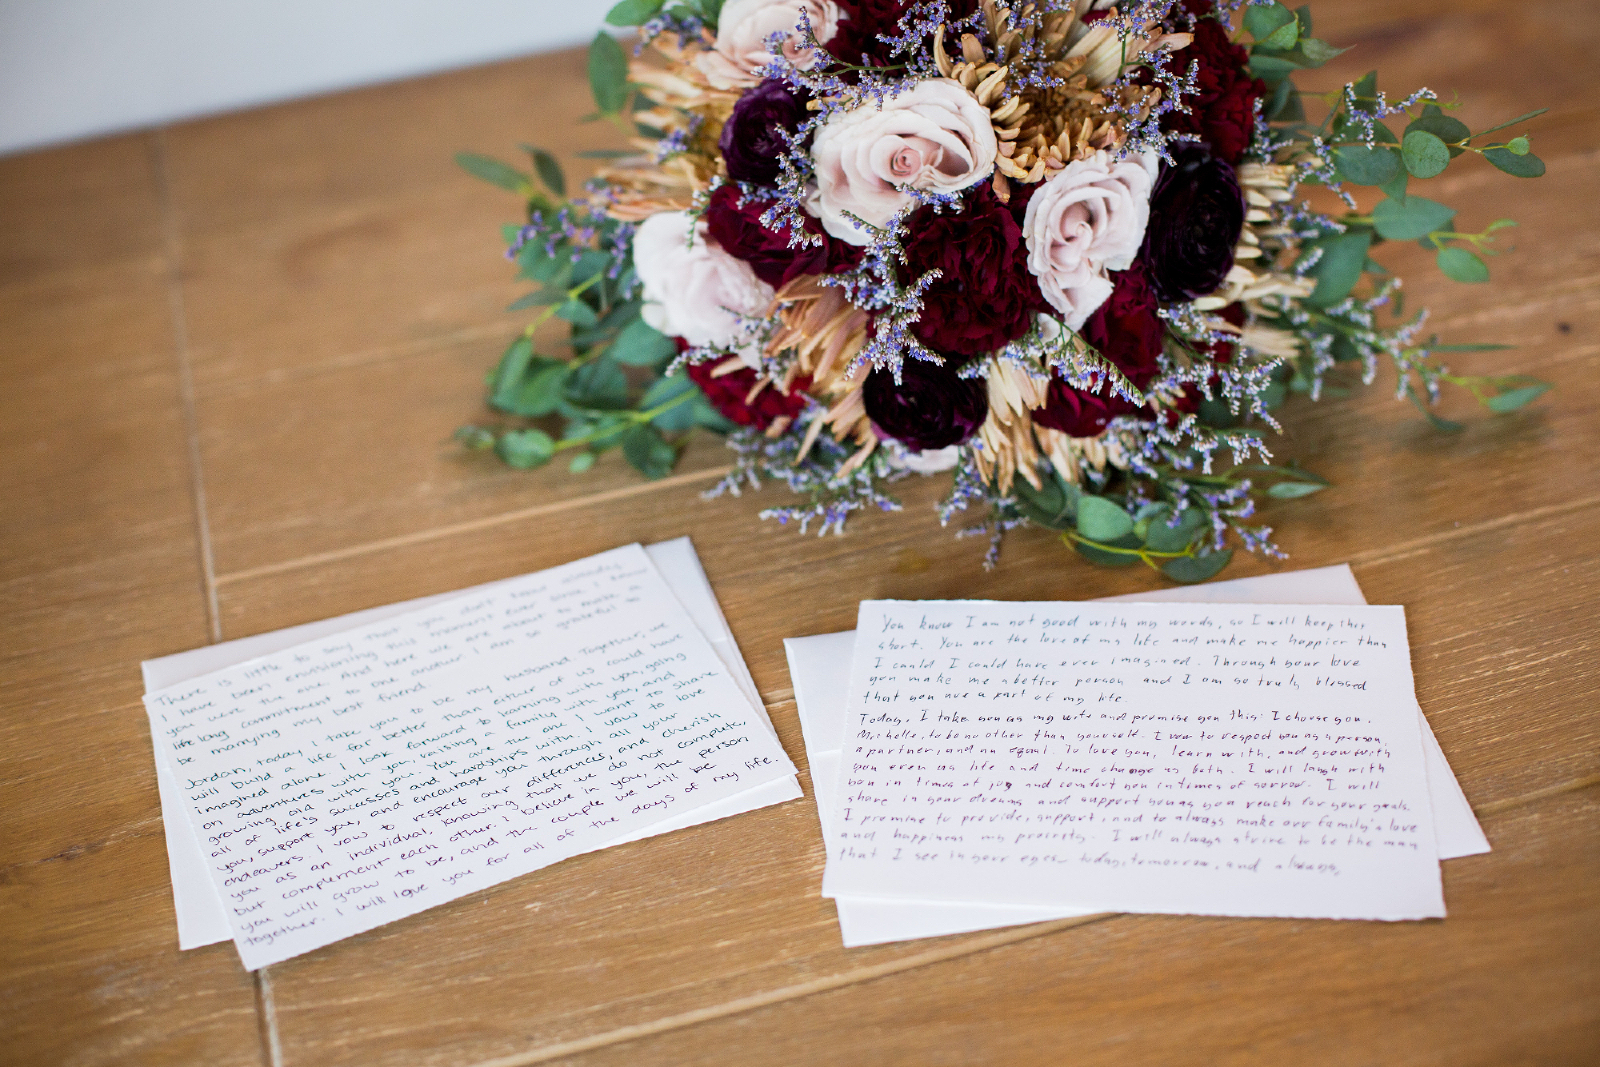 There is little to say that you don't know already.
I have been envisioning this moment ever since I knew
you were the one. And here we are about to make a
lifelong commitment to one another. I am so grateful to
be marrying my best friend.
Jordan, today I take you to be my husband. Together, we
will build a life far better than either of us could have
imagined alone. I look forward to learning with you, going
on adventures with you, raising a family with you, and
growing old with you. You are the one I want to share
all of life's sucesses and hardships with. I vow to love
you, support you, and encourage you through all your
endeavors. I vow to respect our differences, and cherish
you as an individual, knowing that we do not complete,
but complement each other. I believe in you, the person
you will grow to be, and the couple we will be
together. I will love you for all of the days of my life.
You know I am not good with my words, so I will keep this
short. You are the love of my life and make me happier than
I could I could have ever imagined. Through your love
you make me a better person and I am so truly blessed
that you are a part of my life.
Today, I take you as my wife and promise you this: I choose you,
Michelle, to be no other than yourself. I vow to respect you as a person,
a partner, and an equal. To love you, learn with, and grow with
you even as life and time change us both. I will laugh with
you in times of joy and comfort you in times of sorrow. I will
share in your dreams and support you as you reach for your goals.
I promise to provide, support, and to always make our family's love
and happiness my priority. I will always strive to be the man
that I see in your eyes today, tomorrow, and always.